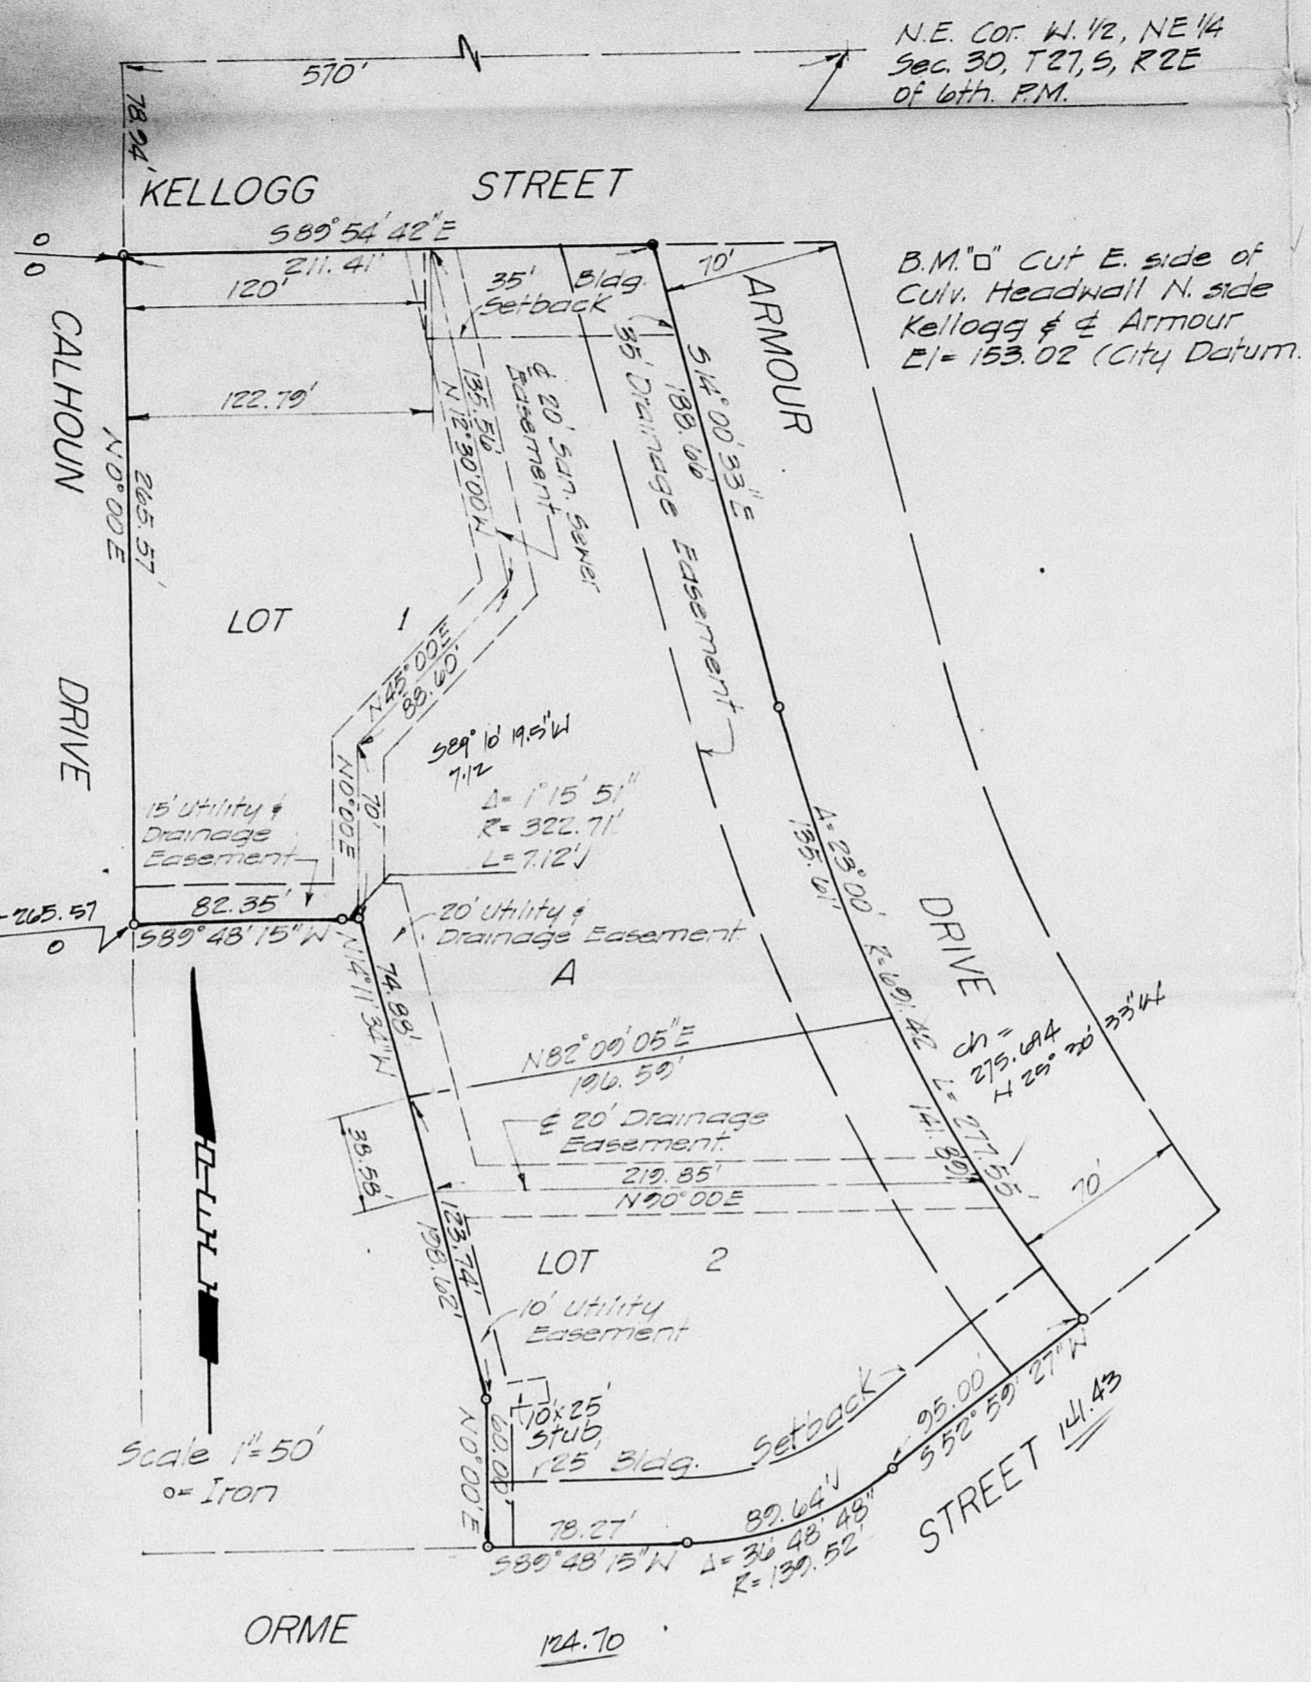 N.E. Cor. W. 1/2, NE 1/4
Sec. 30, T27,S, R2E
of 6th. P.M.
570'
78.94'
KELLOGG STREET
S89° 54' 42" E
211.41'
0
0
120'
35' Bldg.
Setback
70'
B.M. "□" Cut E. side of
Culv. Headwall N. side
Kellogg & ℄ Armour
El = 153.02 (City Datum.
ARMOUR
DRIVE
CALHOUN
DRIVE
122.79'
N 0° 00 E
265.57'
135.56'
N 12° 30' 00 W
℄ 20' San. Sewer
Easement
35' Drainage Easement
S14° 00' 33" E
188.66
LOT 1
N45° 00 E
88.60'
S89° 10' 19.5" W
7.12
Δ = 1° 15' 51"
R = 322.71'
L = 7.12'√
N0° 00 E
70'
15' Utility &
Drainage
Easement
82.35'
S89° 48' 15" W
265.57
0
20' Utility &
Drainage Easement
A
Δ = 23° 00'
135.61'
R = 691.42
L = 277.55'
141.89'
ch =
275.694
N 25° 30' 33" W
74.88'
N14° 11' 34" W
N82° 09' 05" E
196.59'
℄ 20' Drainage
Easement
219.85'
N90° 00 E
38.58'
123.74'
198.62'
70'
LOT 2
10' Utility
Easement
10' x 25'
Stub
25' Bldg. Setback
60.00'
N0° 00' E
Scale 1" = 50'
o = Iron
78.27'
S89° 48' 15" W
89.64'√
Δ = 36° 48' 48"
R = 139.52'
95.00'
S 52° 59' 27" W
141.43
ORME STREET
124.70